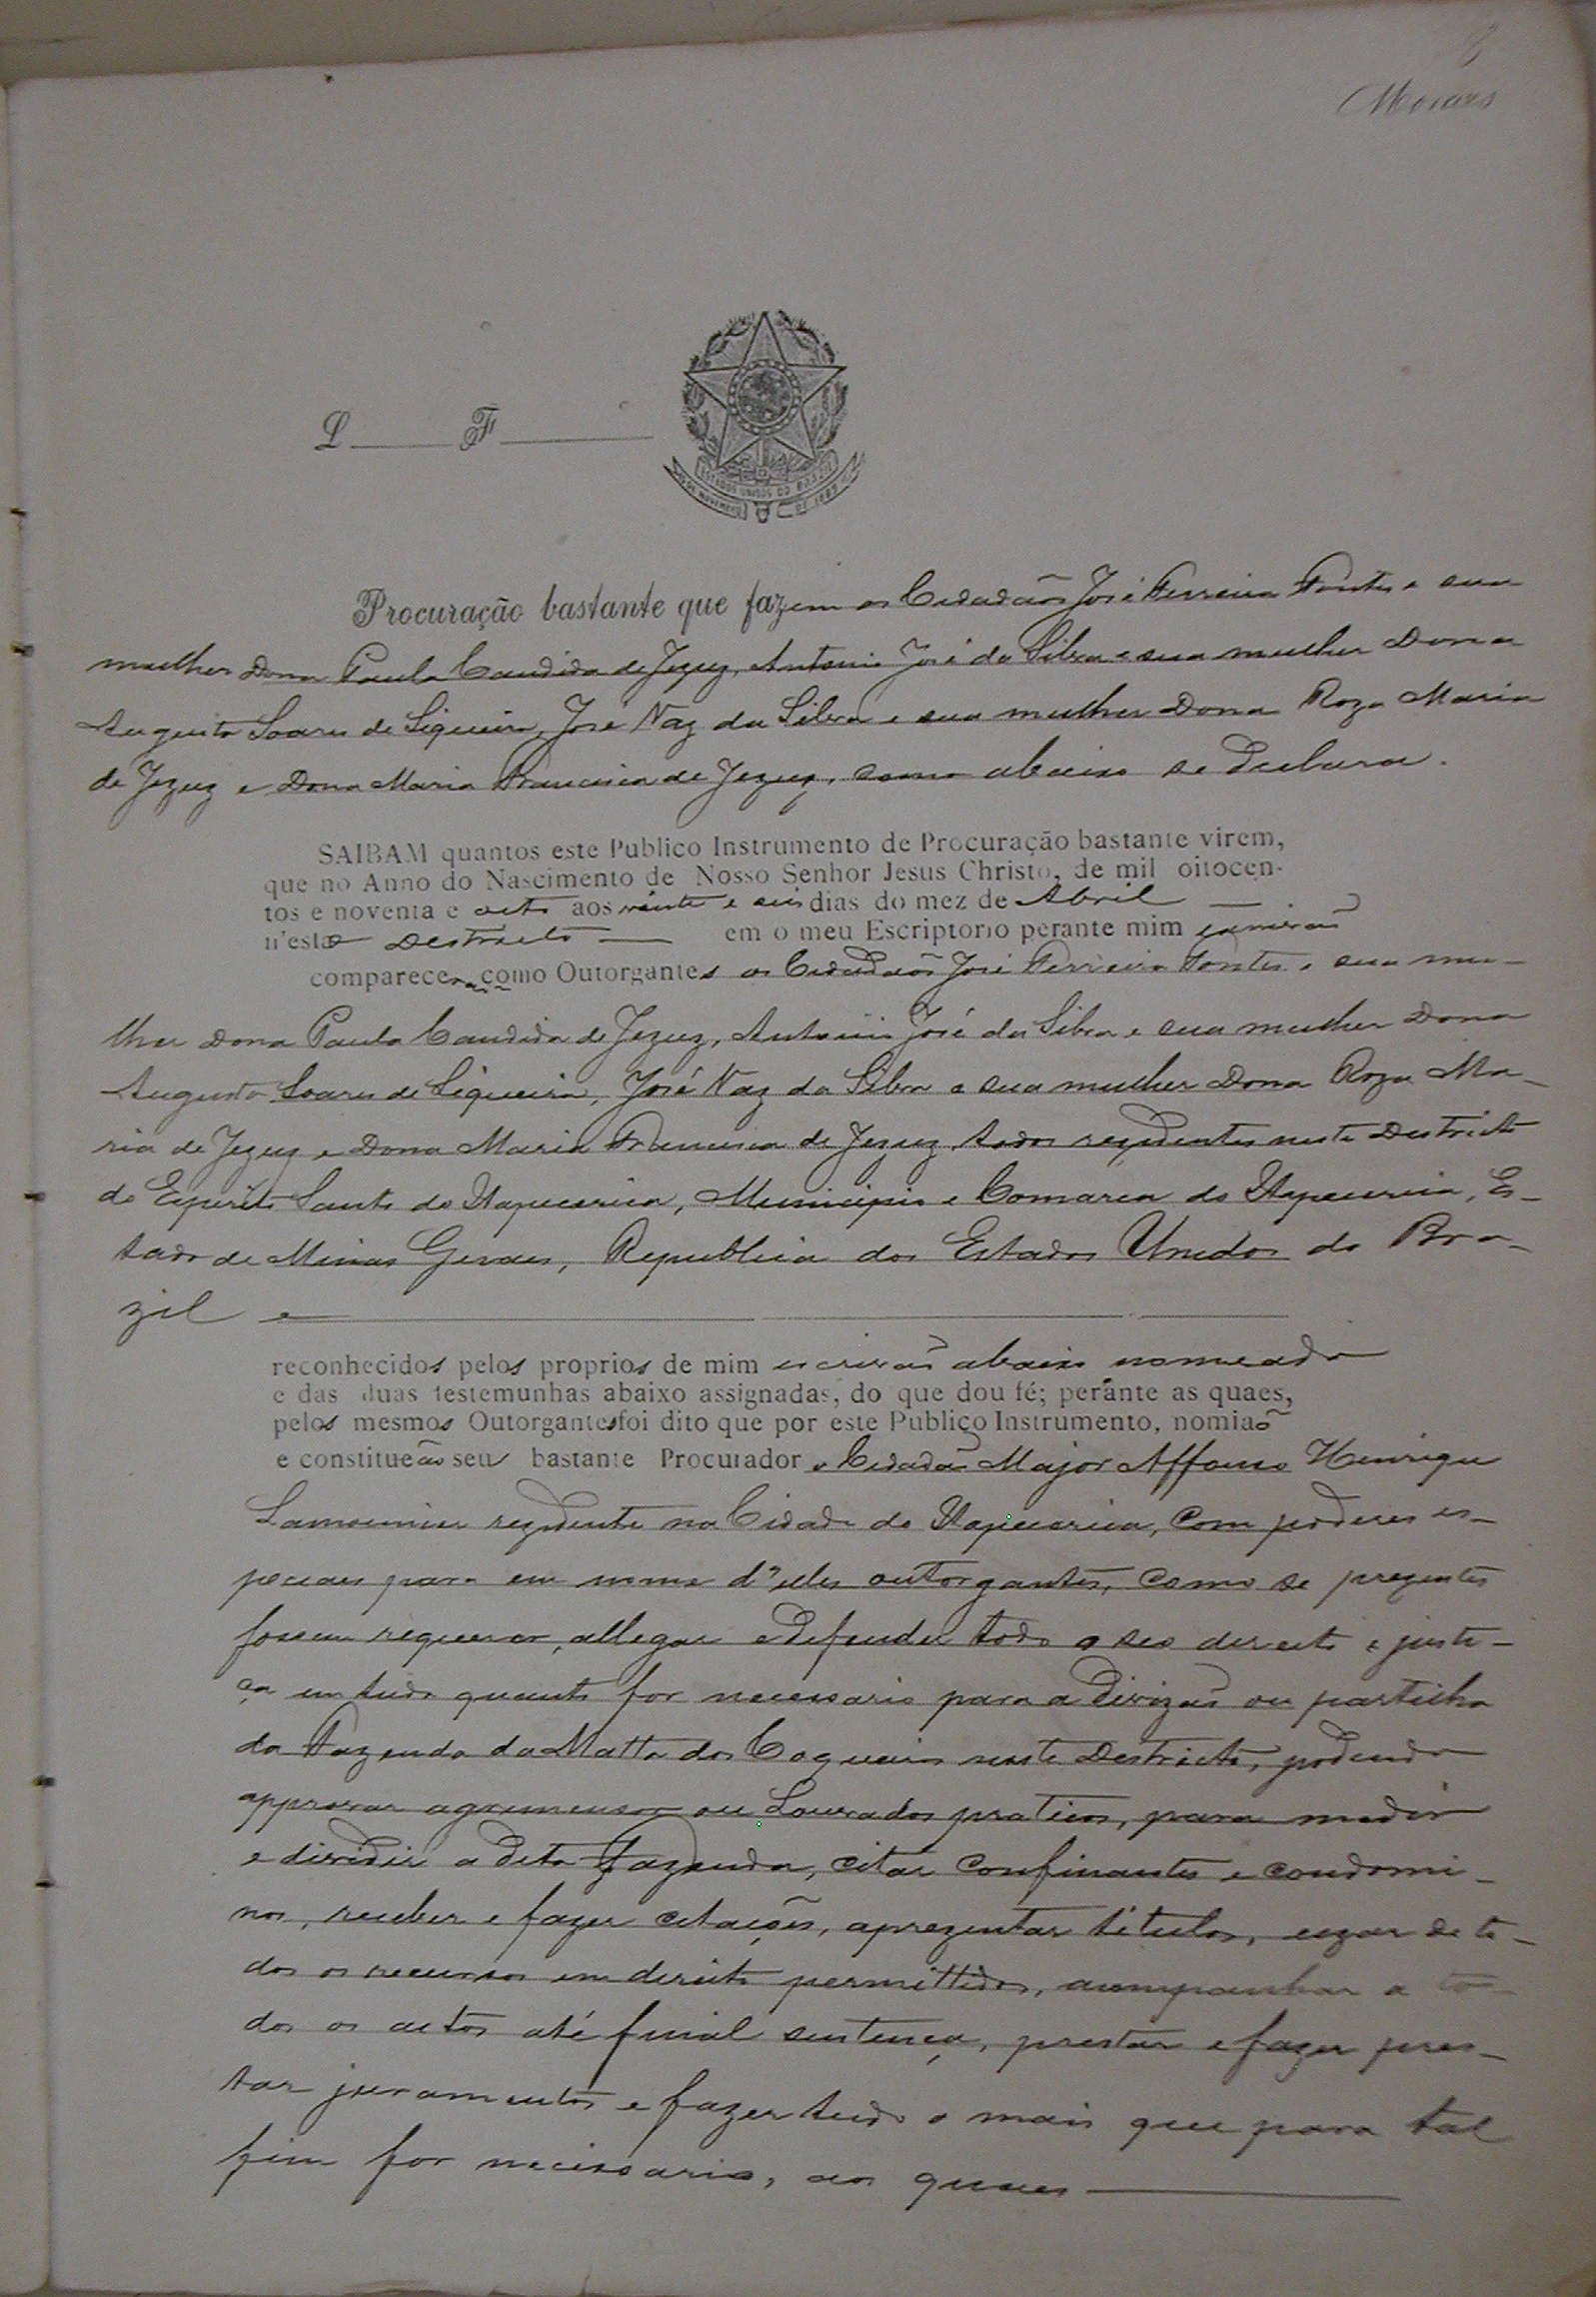 8
Moraes
L F
ESTADOS UNIDOS DO BRAZIL
15 DE NOVEMBRO DE 1889
Procuração bastante que fazem os Cidadãos José Ferreira Fontes e sua
mulher Dona Paula Candida de Jezuz, Antonio José da Silva e sua mulher Dona
Augusta Soares de Siqueira, José Vaz da Silva e sua mulher Dona Roza Maria
de Jezuz e Dona Maria Francisca de Jezuz, como abaixo se declara.
SAIBAM quantos este Publico Instrumento de Procuração bastante virem,
que no Anno do Nascimento de Nosso Senhor Jesus Christo, de mil oitocen-
tos e noventa e oito aos vinte e seis dias do mez de Abril
n'este Destricto em o meu Escriptorio perante mim escrivão
comparecerão como Outorgantes os Cidadãos José Ferreira Fontes e sua mu-
lher Dona Paula Candida de Jezuz, Antonio José da Silva e sua mulher Dona
Augusta Soares de Siqueira, José Vaz da Silva e sua mulher Dona Roza Ma-
ria de Jezuz e Dona Maria Francisca de Jezuz, todos rezidentes neste Destricto
do Espirito Santo do Itapecerica, Municipio e Comarca do Itapecerica, Es-
tado de Minas Geraes, Republica dos Estados Unidos do Bra-
zil e
reconhecidos pelos proprios de mim escrivão abaixo nomeado
e das duas testemunhas abaixo assignadas, do que dou fé; perante as quaes,
pelos mesmos Outorgantes foi dito que por este Publico Instrumento, nomiaõ
e constitueão seu bastante Procurador o Cidadão Major Affonso Henrique
Lamounier rezidente na Cidade do Itapecerica, com poderes es-
peciaes para em nome d'elles outorgantes, como se prezentes
fossem requerer, allegar e defender todo o seo dereito e justi-
ça em tudo quanto for necessario para a divizão ou partilha
da Fazenda da Matta dos Coqueiros neste Destricto, podendo
approvar agrimensor ou Louvados praticos, para medir
e dividir a dita Fazenda, citar confinantes e condomi-
nos, receber e fazer citações, aprezentar titulos, uzar de to-
dos os recursos em dereito permittidos, acompanhar a to-
dos os actos até final sentença, prestar e fazer pres-
tar juramentos e fazer tudo o mais que para tal
fim for necessario, aos quaes